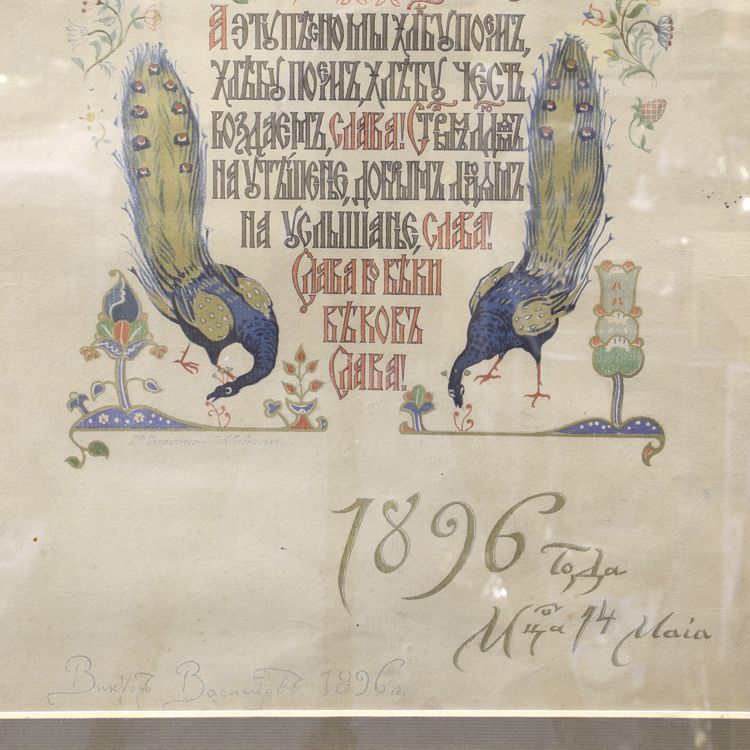 А ЭТУ ПѢСНЮ МЫ ХЛѢБУ ПОЕМЪ,
ХЛѢБУ ПОЕМЪ, ХЛѢБУ ЧЕСТЬ
ВОЗДАЕМЪ, СЛАВА! СТАРЫМЪ ЛЮДЯМЪ
НА УТѢШЕНЬЕ, ДОБРЫМЪ ЛЮДЯМЪ
НА УСЛЫШАНЬЕ, СЛАВА!
СЛАВА ВО ВѢКИ
ВѢКОВЪ
СЛАВА!
1896 Года
Мца 14 Маіа
Викторъ Васнецовъ 1896 г.